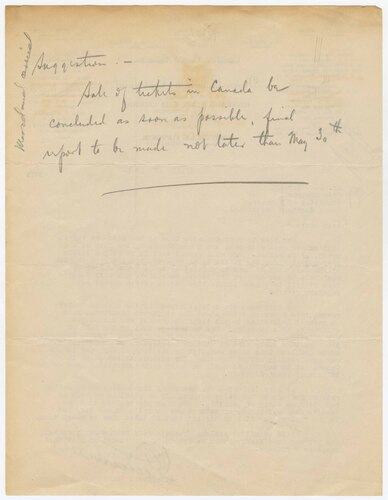 Suggestion. —
Sale of tickets in Canada be
concluded as soon as possible, final
report to be made not later than May 30th